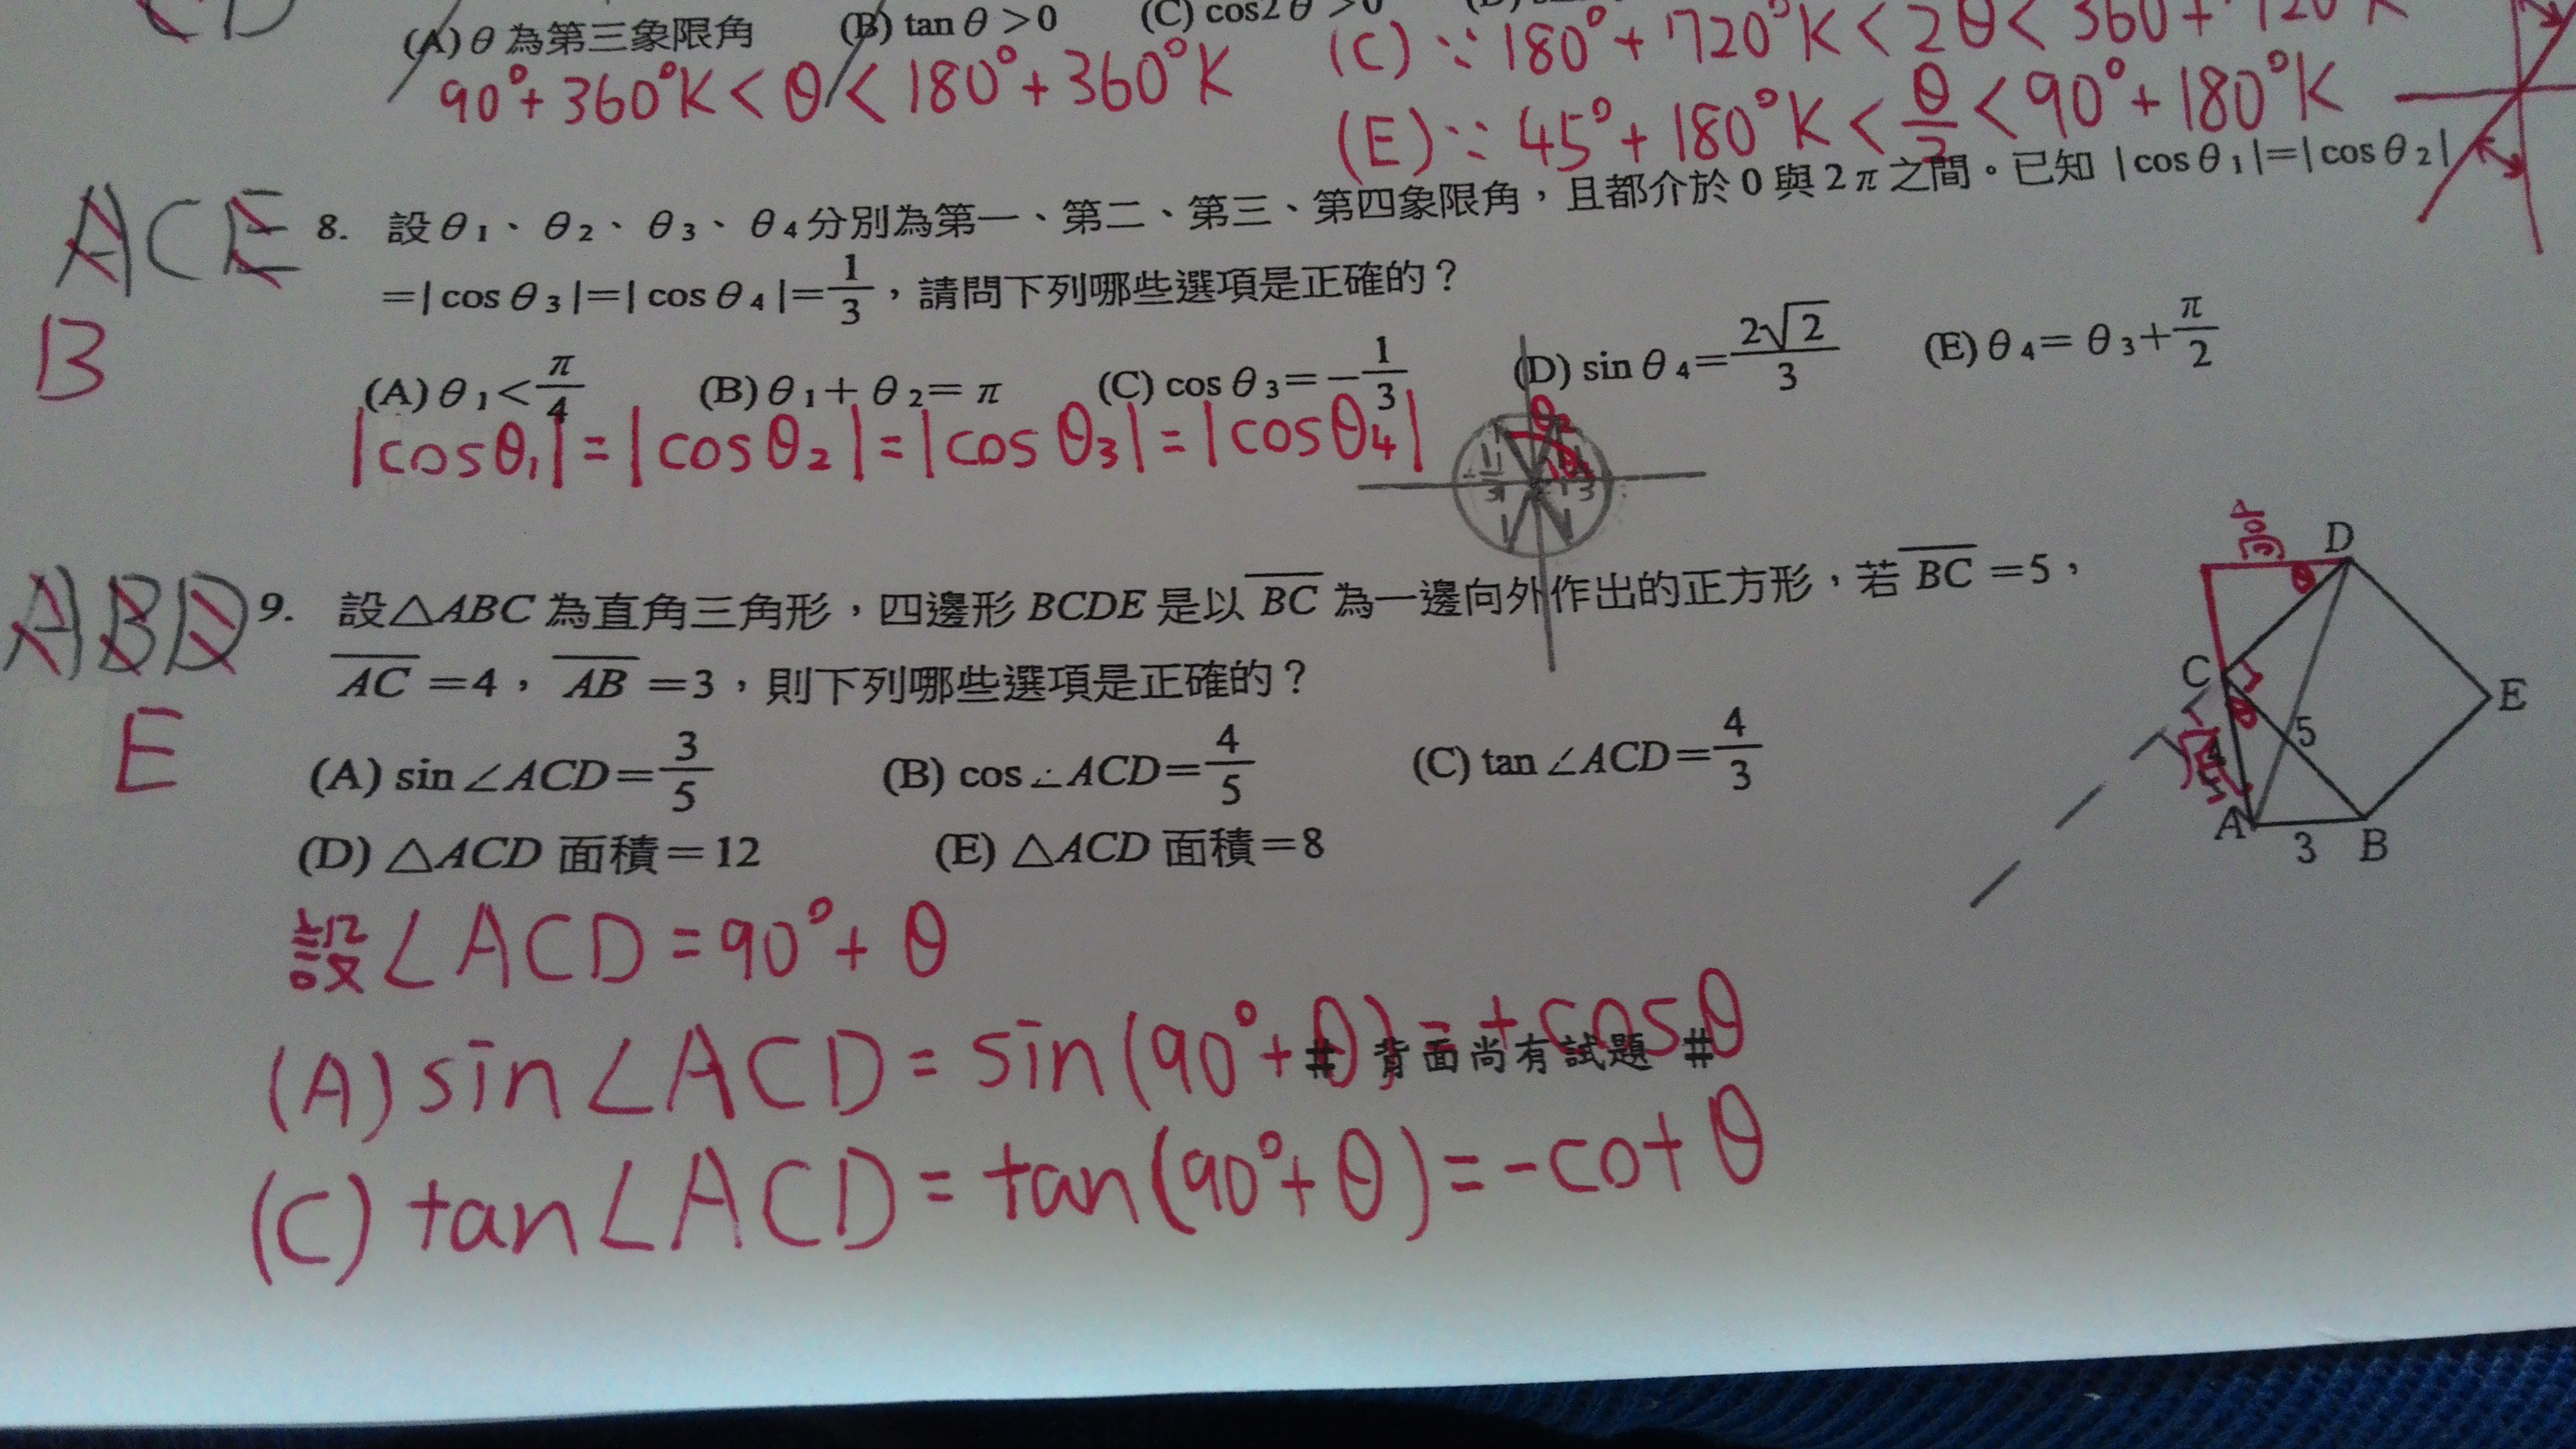 CD
(A) θ 為第三象限角 (B) tan θ > 0 (C) cos2θ > 0
90°+360°K < θ < 180°+360°K
(C) ∵ 180°+720°K < 2θ < 360+720°K
(E) ∵ 45°+180°K < θ/2 < 90°+180°K
ACE
B
8. 設 θ₁、θ₂、θ₃、θ₄ 分別為第一、第二、第三、第四象限角，且都介於 0 與 2π 之間。已知 |cos θ₁|=|cos θ₂|
=|cos θ₃|=|cos θ₄|=1/3，請問下列哪些選項是正確的？
(A) θ₁<π/4 (B) θ₁+θ₂=π (C) cos θ₃=-1/3 (D) sin θ₄=2√2/3 (E) θ₄=θ₃+π/2
|cosθ₁|=|cosθ₂|=|cosθ₃|=|cosθ₄|
θ₂
ABD
E
9. 設△ABC 為直角三角形，四邊形 BCDE 是以 BC 為一邊向外作出的正方形，若 BC =5，
AC =4， AB =3，則下列哪些選項是正確的？
(A) sin ∠ACD=3/5 (B) cos ∠ACD=4/5 (C) tan ∠ACD=4/3
(D) △ACD 面積=12 (E) △ACD 面積=8
高
D
θ
C
θ
E
5
4
底
A
3
B
設∠ACD=90°+θ
(A) sin∠ACD=sin(90°+θ)=+cosθ
# 背面尚有試題 #
(C) tan∠ACD=tan(90°+θ)=-cotθ